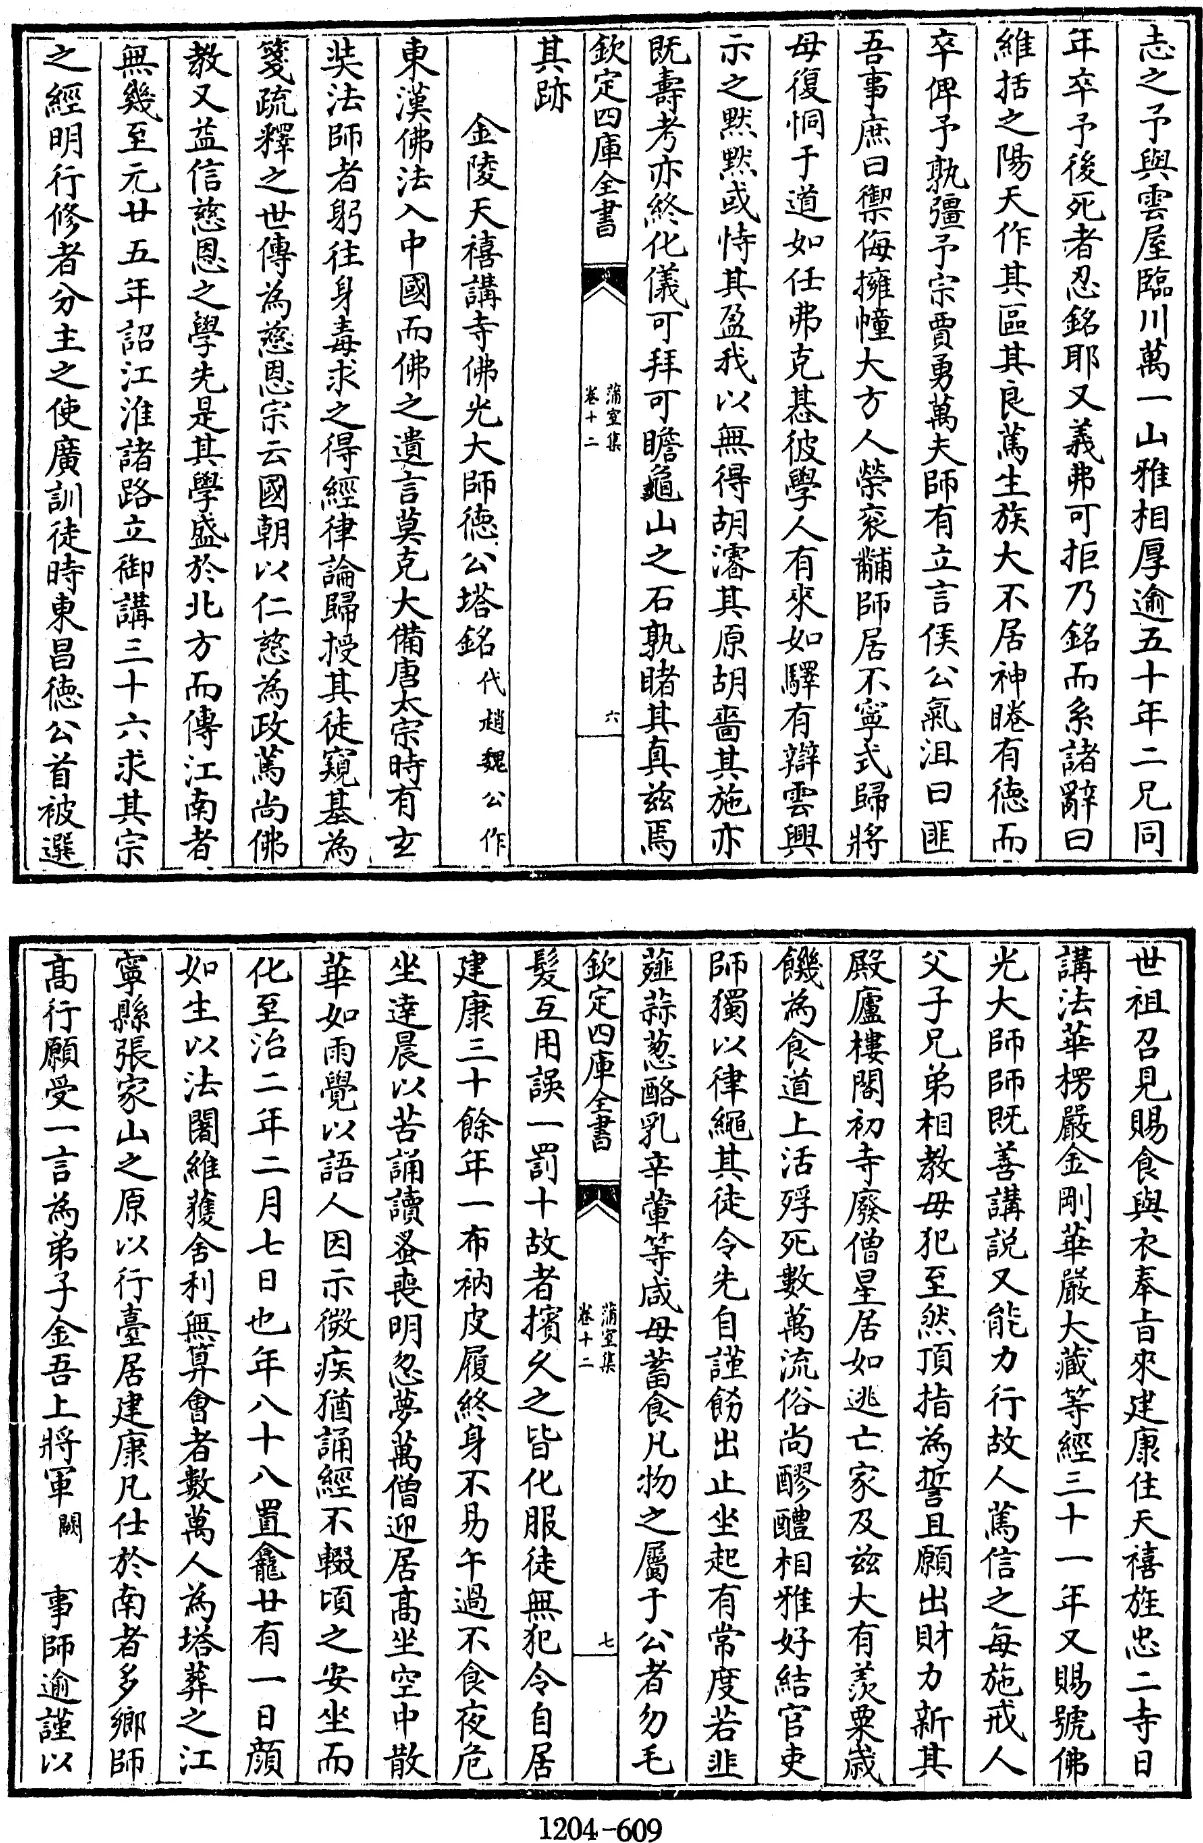 志之予與雲屋臨川萬一山雅相厚逾五十年二兄同
年卒予後死者忍銘耶又義弗可拒乃銘而系諸辭曰
維括之陽天作其區其良萬生族大不居神睠有徳而
卒俾予孰彊予宗賈勇萬夫師有立言俟公氣沮曰匪
吾事庶曰禦侮擁幢大方人榮衮黼師居不寧式歸將
母復恫于道如任弗克惎彼學人有來如驛有辯雲興
示之黙黙或恃其盈我以無得胡濬其原胡嗇其施亦
既壽考亦終化儀可拜可瞻龜山之石孰睹其真兹焉
欽定四庫全書
蒲室集
卷十二
六
其跡
金陵天禧講寺佛光大師徳公塔銘代趙魏公作
東漢佛法入中國而佛之遺言莫克大備唐太宗時有玄
奘法師者躬往身毒求之得經律論歸授其徒窺基為
箋疏釋之世傳為慈恩宗云國朝以仁慈為政篤尚佛
教又益信慈恩之學先是其學盛於北方而傳江南者
無幾至元廿五年詔江淮諸路立御講三十六求其宗
之經明行修者分主之使廣訓徒時東昌徳公首被選
世祖召見賜食與衣奉旨來建康住天禧旌忠二寺日
講法華楞嚴金剛華嚴大藏等經三十一年又賜號佛
光大師師既善講説又能力行故人篤信之每施戒人
父子兄弟相教毋犯至然頂指為誓且願出財力新其
殿廬樓閣初寺廢僧星居如逃亡家及兹大有羨粟歳
饑為食道上活殍死數萬流俗尚醪醴相雅好結官吏
師獨以律繩其徒令先自謹飭出止坐起有常度若韭
薤蒜葱酪乳辛葷等咸毋蓄食凡物之屬于公者勿毛
欽定四庫全書
蒲室集
卷十二
七
髮互用誤一罰十故者擯久之皆化服徒無犯令自居
建康三十餘年一布衲皮履終身不易午過不食夜危
坐達晨以苦誦讀蚤喪明忽夢萬僧迎居髙坐空中散
華如雨覺以語人因示微疾猶誦經不輟頃之安坐而
化至治二年二月七日也年八十八置龕廿有一日顔
如生以法闍維獲舍利無算會者數萬人為塔葬之江
寧縣張家山之原以行臺居建康凡仕於南者多鄉師
髙行願受一言為弟子金吾上將軍闕 事師逾謹以
1204-609